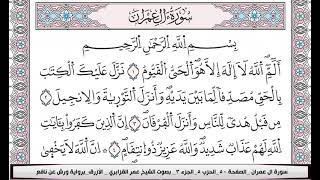 سُورَةُ ءَالِ عِمْرَانَ
بِسْمِ اِللَّهِ اِلرَّحْمَٰنِ اِلرَّحِيمِ
أَلَٓمِّٓ اَللَّهُ لَآ إِلَٰهَ إِلَّا هُوَ اَلْحَيُّ اُلْقَيُّومُ ١ نَزَّلَ عَلَيْكَ اَلْكِتَٰبَ
بِالْحَقِّ مُصَدِّقاً لِّمَا بَيْنَ يَدَيْهِ وَأَنزَلَ اَلتَّوْرَيٰةَ وَالِانجِيلَ ٢
مِن قَبْلُ هُدىً لِّلنَّاسِ وَأَنزَلَ اَلْفُرْقَانَ ٣ إِنَّ اَلذِينَ كَفَرُواْ بِـَٔايَٰتِ
اِللَّهِ لَهُمْ عَذَابٌ شَدِيدٌ وَاللَّهُ عَزِيزٌ ذُو اُنتِقَامٍ ٤ اِنَّ اَللَّهَ لَا يَخْف۪يٰ
سورة آل عمران _ الصفحة ٥٠ _ الجزء ٣ _ بصوت الشيخ عمر القزابري _ الأزرق _ برواية ورش عن نافع